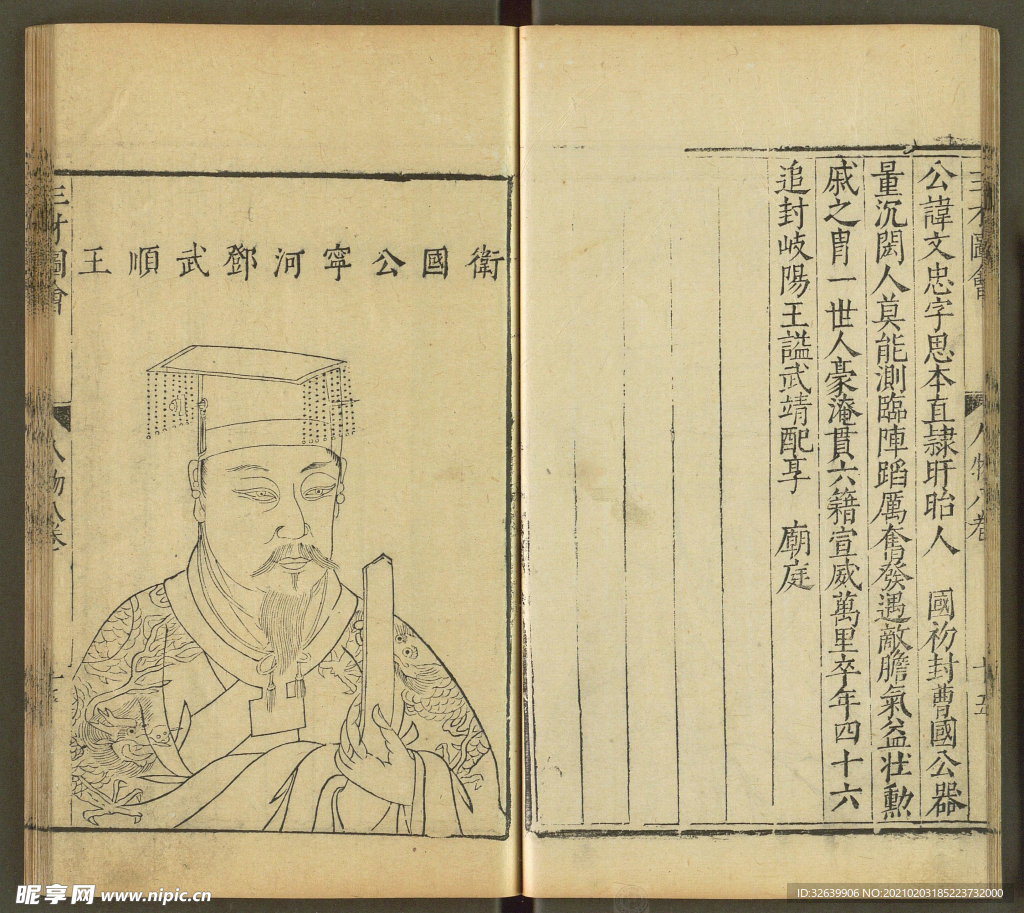 三才圖會
人物六卷
十五
公諱文忠字思本直隷盱眙人 國初封曹國公器
量沉閎人莫能測臨陣蹈厲奮發遇敵膽氣益壯勲
戚之胄一世人豪淹貫六籍宣威萬里卒年四十六
追封岐陽王謚武靖配享 廟庭
衛國公寧河鄧武順王
三才圖會
人物
卷
昵享网 www.nipic.cn
ID:32639906 NO:20210203185223732000